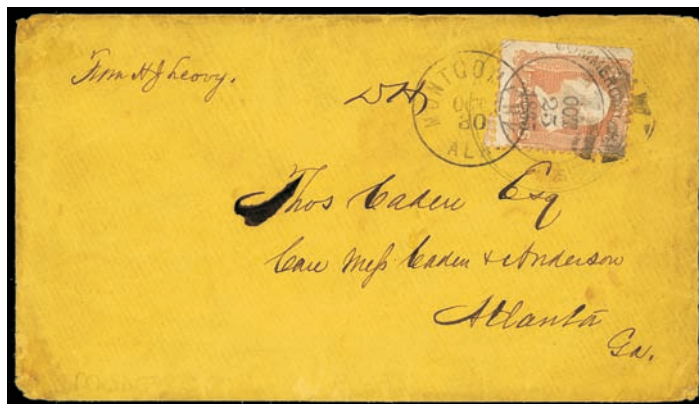 From H J Leovy.
DH
MONTGOM
OCT
30
ALA
OCT
25
COMMERCIAL
Thos Caden Esq
Care Mess Caden & Anderson
Atlanta
Ga.